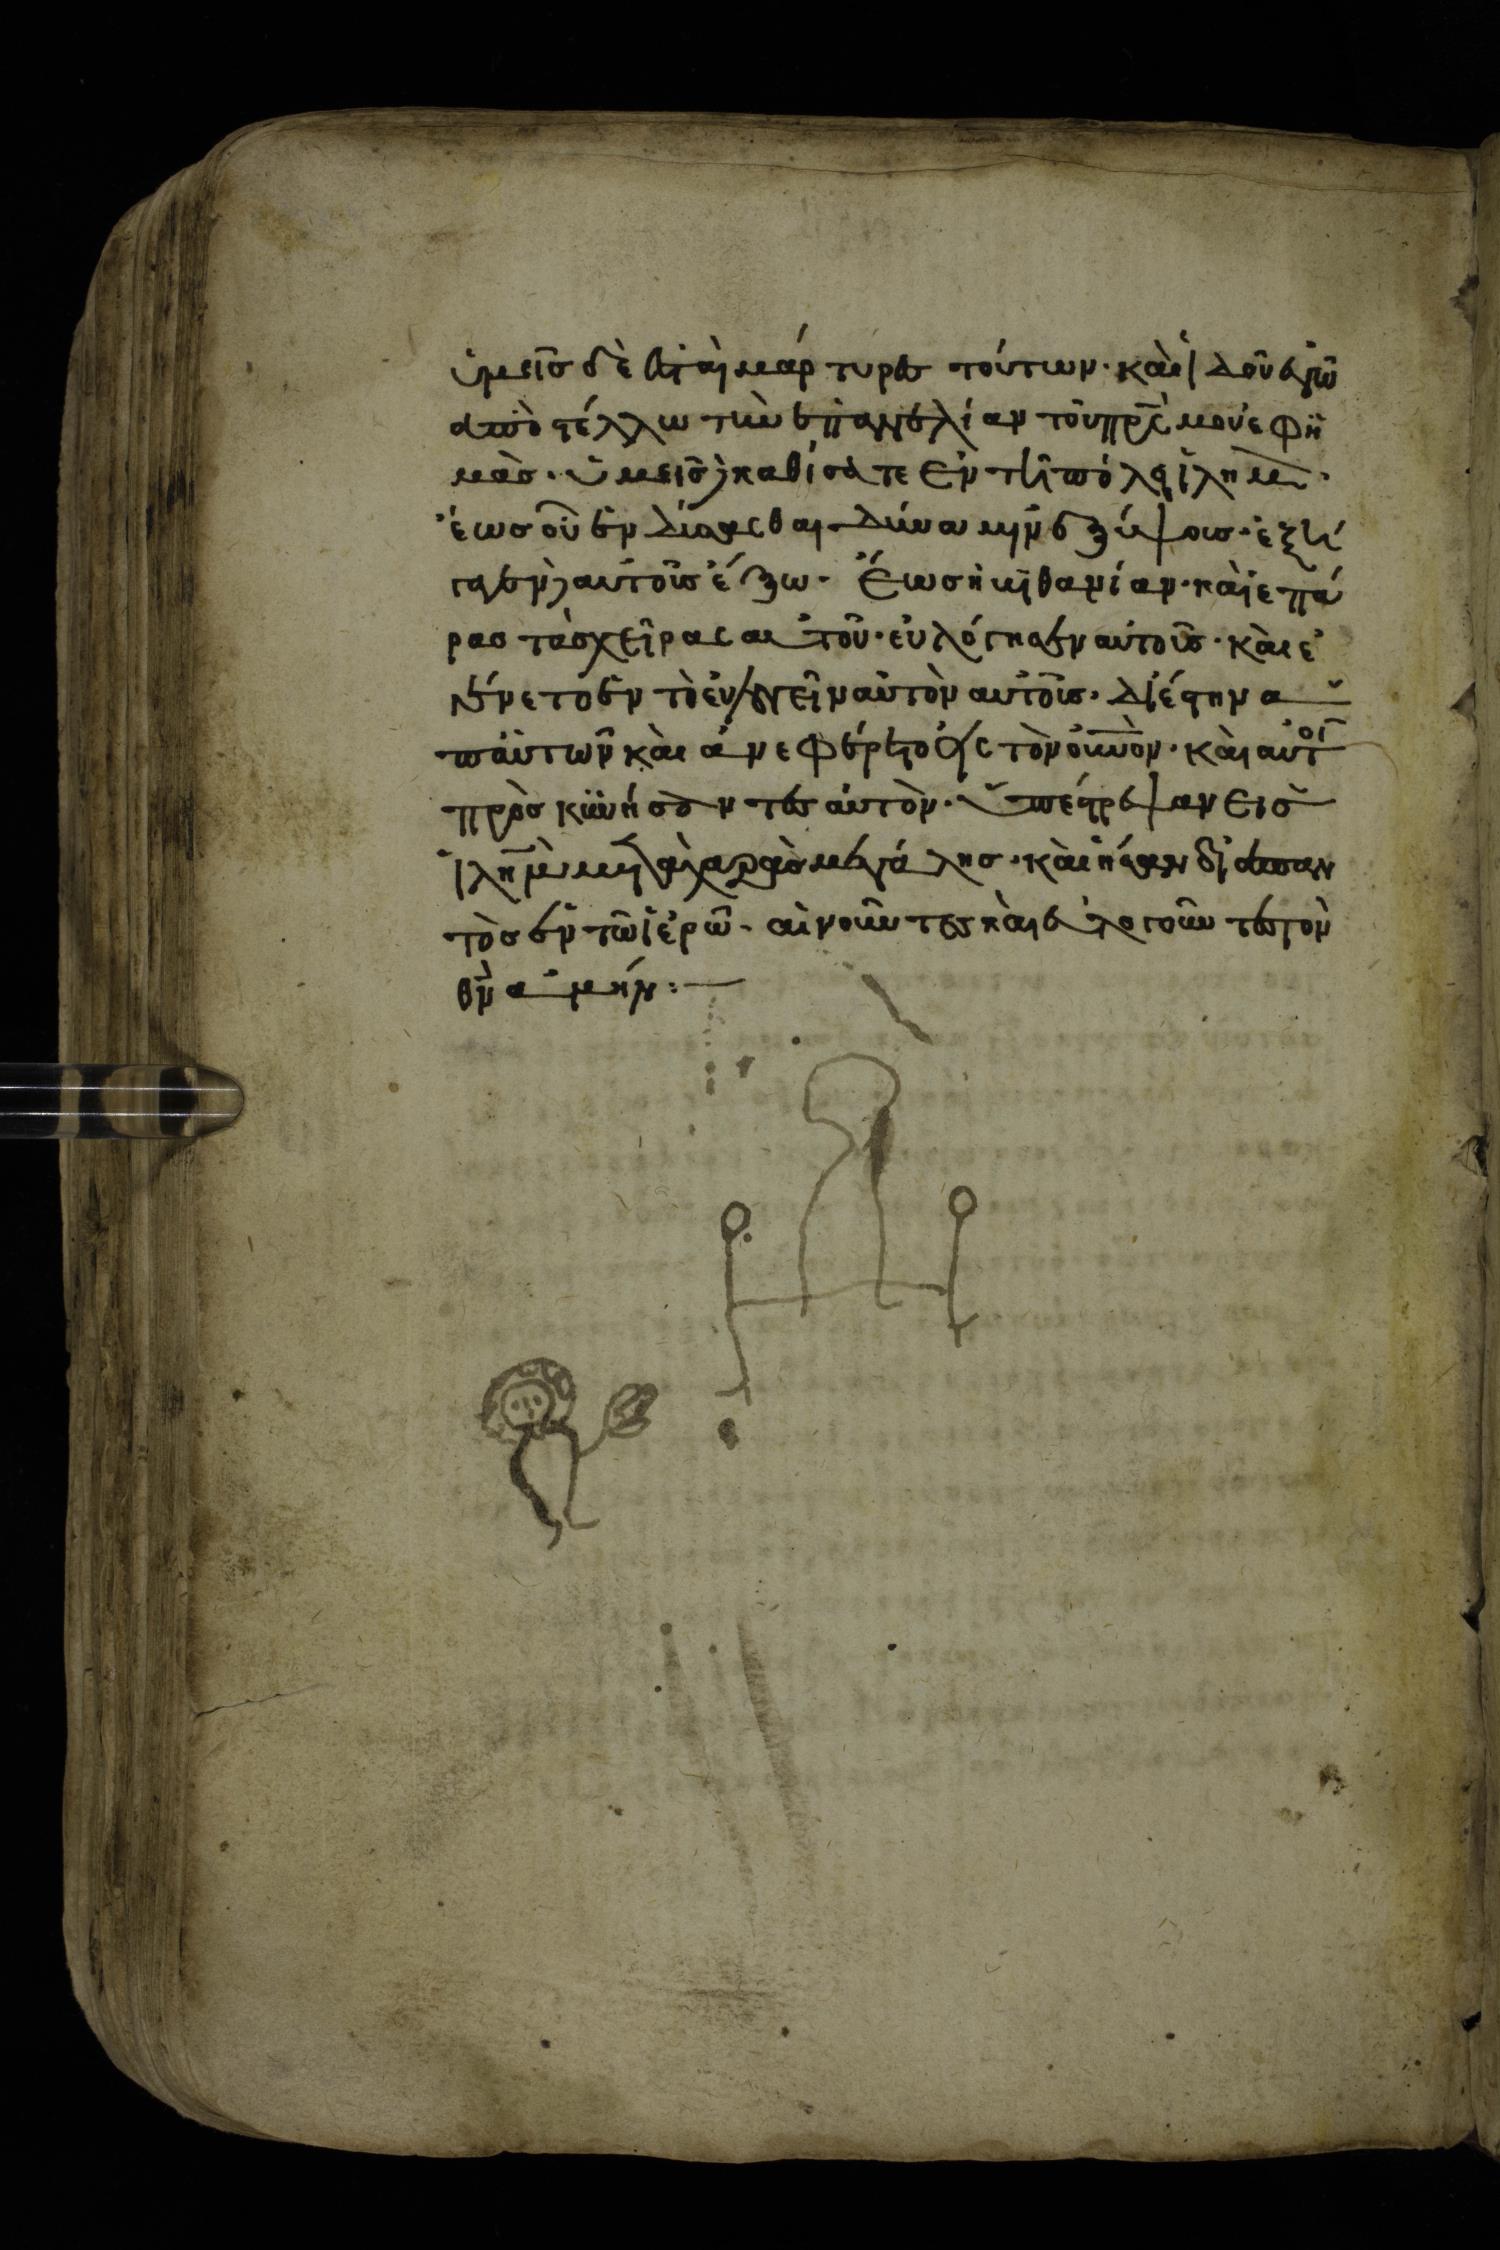 ὑμεῖς δὲ ἐσταὶ μάρτυρες τούτων· καὶ ἰδοὺ ἐγὼ
ἀποστέλλω τὴν ἐπαγγελίαν τοῦ πρς μου ἐφ ἡ
μάς· ὑμεῖς δὲ καθίσατε ἐν τῆ πόλει ἰλημ·
ἕως οὗ ἐνδύσεσθαι δύναμιν ἐξ ύψους· ἐξή
γαγεν δὲ αὐτοῖς έξω· ἕως ἠς βηθανίαν· καὶ ἐπά
ρας τὰς χεῖρας αυτοῦ· εὐλόγησεν αὐτοῖς· καὶ ἐ
γένετο ἐν τὸ εὐλογεῖν αὐτὸν αυτοῖς· διέστη ἀ
π αὐτῶν καὶ ἀνεφέρετο εἰς τὸν οὐνον· καὶ αὐτοὶ
προσκυνήσαντες αὐτὸν· ὑπέστρεψαν εἰς
ἰλημ μετὰ χαρᾶς μεγάλης· καὶ ἦσαν διὰ παν
τὸς ἐν τῶ ἱερῶ· αἰνοῦντες καὶ εὐλογοῦντες τὸν
θν ἀμήν:—